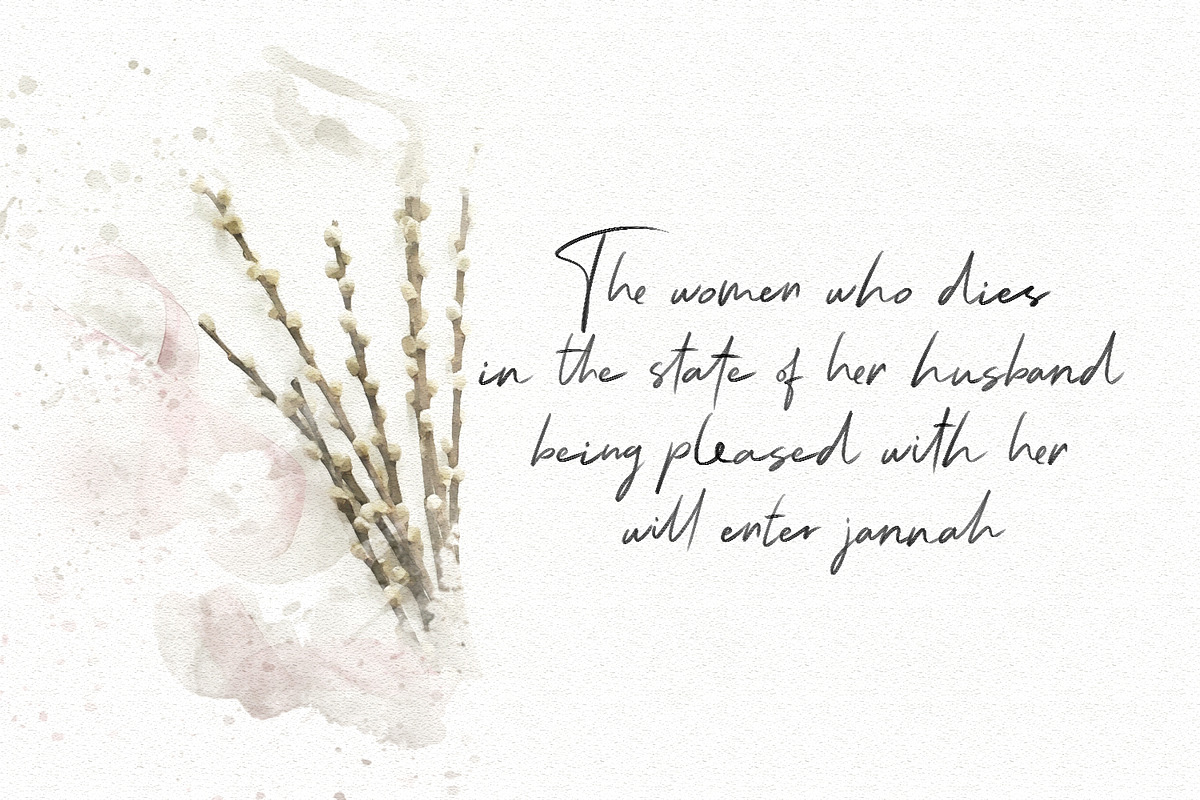 The women who dies
in the state of her husband
being pleased with her
will enter jannah